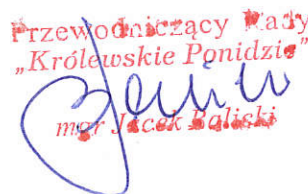 Przewodniczący Rady
„Królewskie Ponidzie”
mgr Jacek Baliski